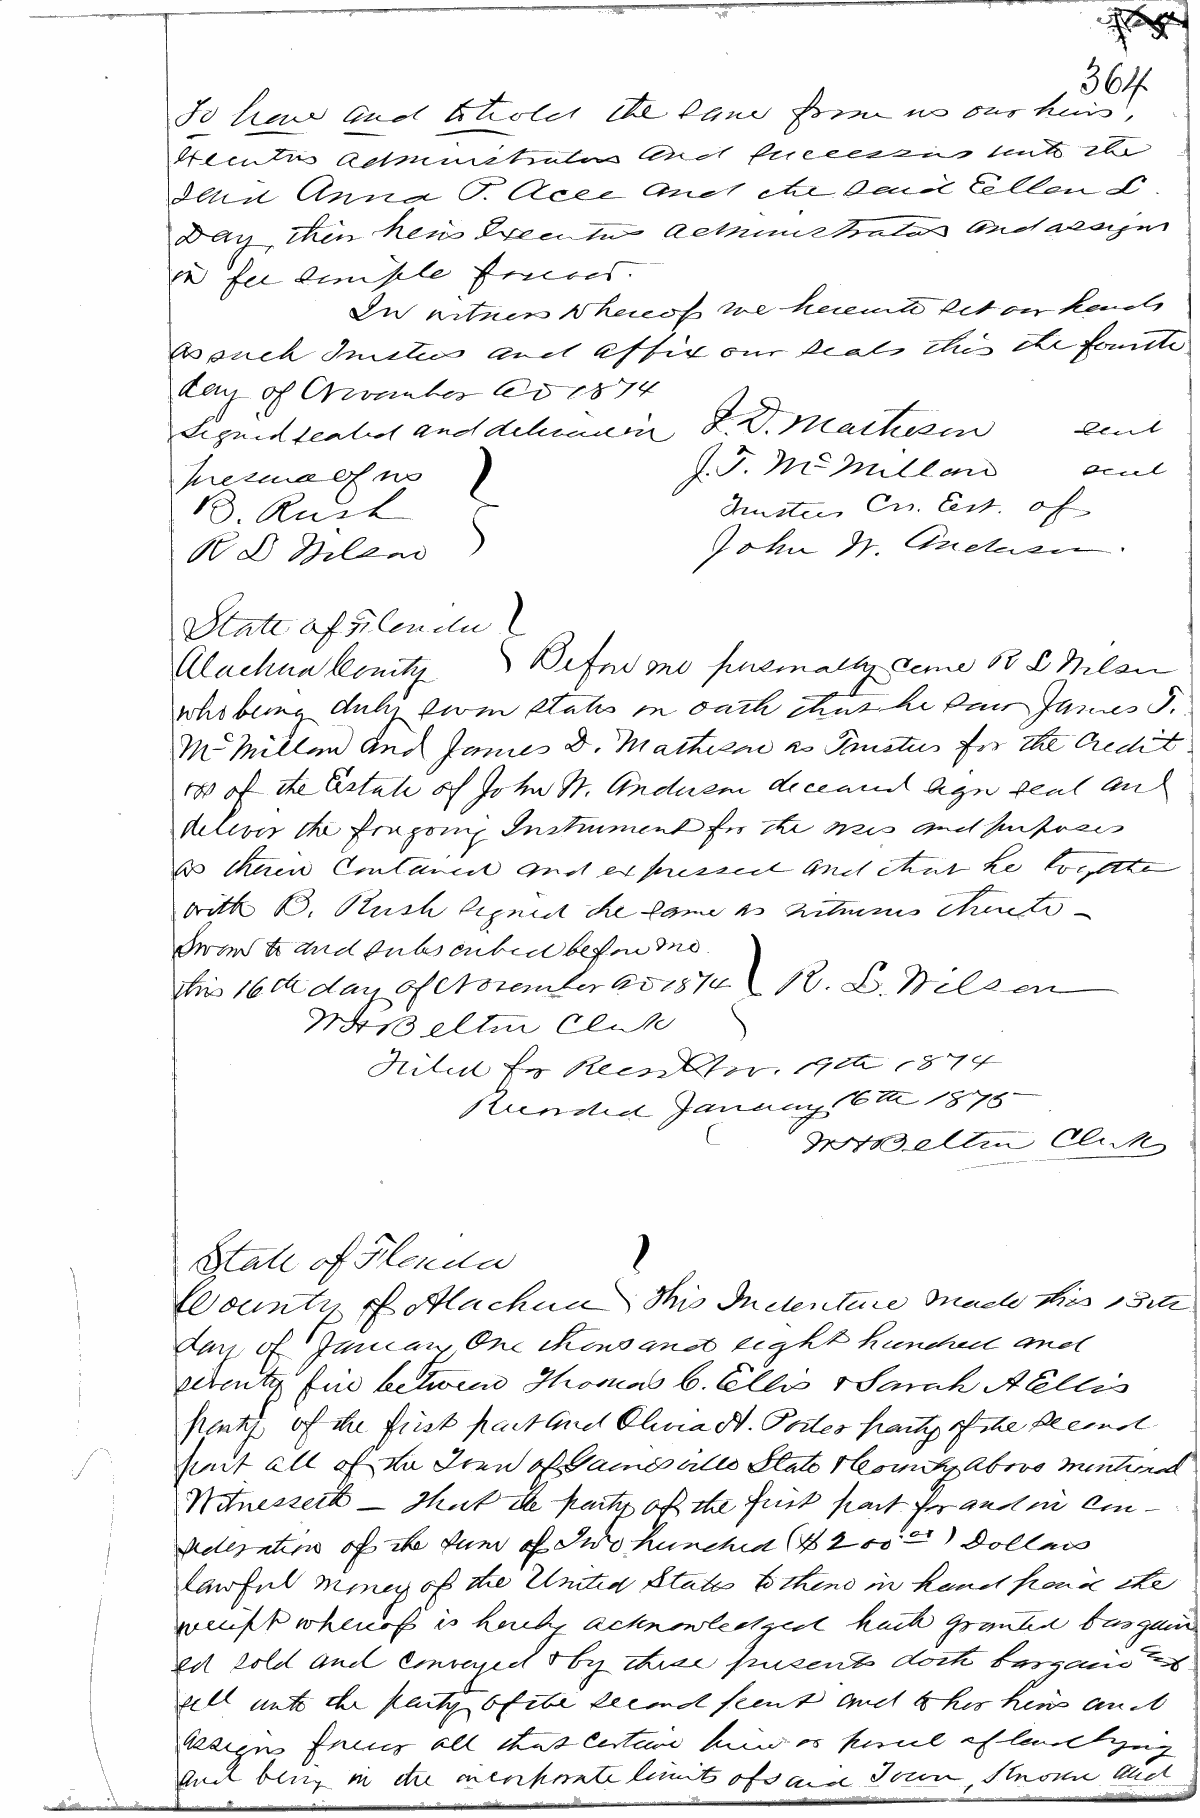 364
To have and to hold the same from us our heirs,
executors administrators and successors unto the
said Anna P. Acee and the said Ellen L.
Day, their heirs Executors administrators and assigns
in fee simple forever.
In witness whereof we hereunto set our hands
as such Trustees and affix our seals this the fourth
day of November AD 1874
Signed sealed and delivered in J. D. Matheson seal
presence of us J. T. McMillan seal
B. Rush Trustees Crs. Est. of
R L Wilson John W. Anderson.
State of Florida
Alachua County Before me personally came R L Wilson
who being duly sworn states on oath that he saw James T.
McMillan and James D. Matheson as Trustees for the Credit
ors of the Estate of John W. Anderson deceased sign seal and
deliver the foregoing Instrument for the uses and purposes
as therein Contained and expressed and that he together
with B. Rush signed the same as witnesses thereto -
Sworn to and subscribed before me
this 16th day of November AD 1874 R. L. Wilson
WH Belton Clerk
Filed for Record Nov. 19th 1874
Recorded January 16th 1875
WH Belton Clerk
State of Florida
County of Alachua This Indenture made this 13th
day of January One thousand eight hundred and
seventy five between Thomas C. Ellis & Sarah A Ellis
party of the first part and Olivia A. Porter party of the second
part all of the Town of Gainesville State & County above mentioned
Witnesseth - that the party of the first part for and in con-
sideration of the sum of Two hundred ($200.00) Dollars
lawful money of the United States to them in hand paid the
receipt whereof is hereby acknowledged hath granted bargain
ed sold and conveyed & by these presents doth bargain and
sell unto the party of the second part and to her heirs and
assigns forever all that certain piece or parcel of land lying
and being in the incorporate limits of said Town, Known and